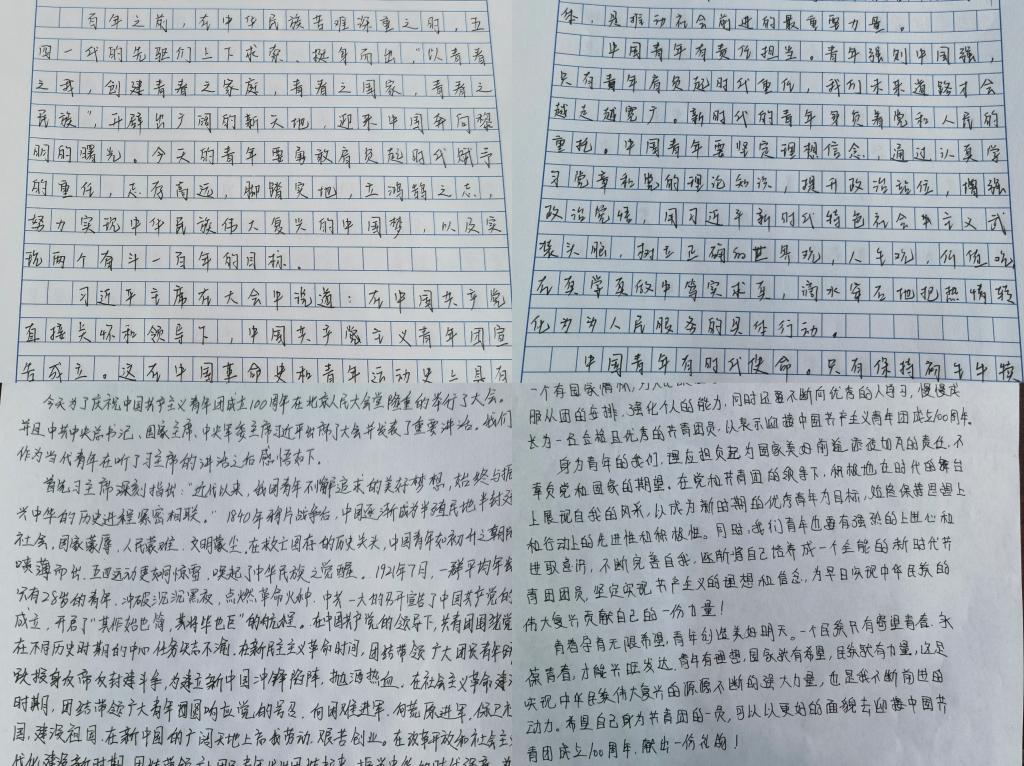 百年之前，在中华民族苦难深重之时，五
四一代的先驱们上下求索、挺身而出，“以青春
之我，创建青春之家庭，青春之国家，青春之
民族”，开辟出广阔的新天地，迎来中国奔向黎
明的曙光。今天的青年要勇敢肩负起时代赋予
的重任，志存高远，脚踏实地，立鸿鹄之志，
努力实现中华民族伟大复兴的中国梦，以及实
现两个奋斗一百年的目标。
习近平主席在大会中说道：在中国共产党
直接关怀和领导下，中国共产党主义青年团宣
告成立。这在中国革命史和青年运动史上具有
体，是推动社会前进的最重要力量。
中国青年有责任担当。青年强则中国强，
只有青年肩负起时代重任，我们未来道路才会
越走越宽广。新时代的青年身负着党和人民的
重托。中国青年要坚定理想信念，通过认真学
习党章和党的理论知识，提升政治站位，增强
政治觉悟，用习近平新时代特色社会主义武
装头脑，树立正确的世界观，人生观，价值观
在真学真做中笃实求真，滴水穿石地把热情转
化为为人民服务的具体行动。
中国青年有时代使命。只有保持初生牛犊
今天为了庆祝中国共产主义青年团成立100周年在北京人民大会堂隆重的举行了大会。
并且中共中央总书记、国家主席、中央军委主席习近平出席了大会并发表了重要讲话。我们
作为当代青年在听了习主席的讲话之后感悟如下。
首先习主席深刻指出：“近代以来，我国青年不懈追求的美好梦想，始终与振
兴中华的历史进程紧密相联。”1840年鸦片战争后，中国逐渐成为半殖民地半封建
社会，国家蒙辱、人民蒙难、文明蒙尘，在救亡图存的历史关头，中国青年如初升之朝阳
喷薄而出，五四运动更如惊雷，唤起了中华民族之觉醒。1921年7月，一群平均年龄
只有28岁的青年，冲破沉沉黑夜，点燃革命火种，中共一大的召开宣告了中国共产党的
成立，开启了“其作始也简，其将毕也巨”的航程。在中国共产党的领导下，共青团围绕党
在不同历史时期的中心任务矢志不渝，在新民主主义革命时间，团结带领广大团员青年
投身反帝反封建斗争，为建立新中国冲锋陷阵，抛洒热血。在社会主义革命建设
时期，团结带领广大青年团响应党的号召，向困难进军，向荒原进军，保卫祖
国，建设祖国，在新中国的广阔天地上奋战劳动，艰苦创业。在改革开放和社会主义
服从团的安排，强化个人的能力，同时还要不断向优秀的人学习，慢慢成
长为一名合格且优秀的共青团员，以表示迎接中国共产主义青年团成立100周年。
身为青年的我们，理应担负起为国家美好前途添砖加瓦的责任，不
辜负党和国家的期望。在党和共青团的领导下，积极地在时代的舞台
上展现自我的风采，以成为新时期的优秀青年为目标，始终保持思想上
和行动上的先进性和积极性。同时，我们青年也要有强烈的上进心和
进取意识，不断完善自我，逐渐将自己培养成一个全能的新时代共
青团团员，坚定实现共产主义的理想和信念，为早日实现中华民族的
伟大复兴贡献自己的一份力量！
青春孕育无限希望，青年创造美好明天。一个民族只有寄望青春、永
葆青春，才能兴旺发达。青年有理想，国家就有希望，民族就有力量，这是
实现中华民族伟大复兴的源源不断的强大力量，也是我不断前进的
动力。希望自己身为共青团的一员，可以以更好的面貌去迎接中国共
青团成立100周年，献出一份礼物！